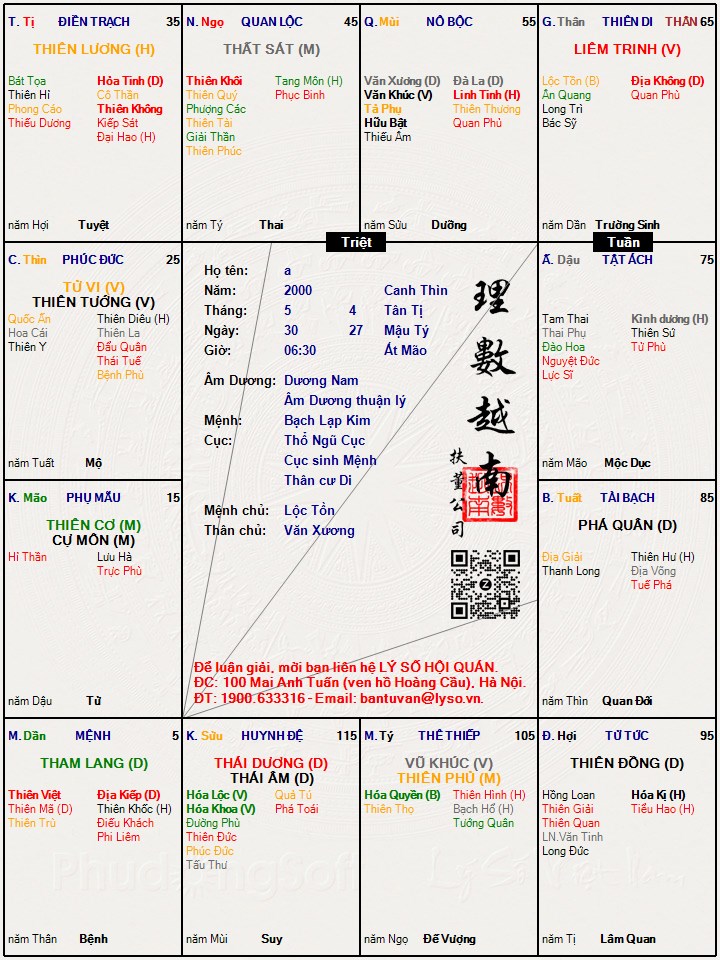 T. Tị ĐIỀN TRẠCH 35
THIÊN LƯƠNG (H)
Bát Tọa Hỏa Tinh (D)
Thiên Hỉ Cô Thần
Phong Cáo Thiên Không
Thiếu Dương Kiếp Sát
Đại Hao (H)
năm Hợi Tuyệt
N. Ngọ QUAN LỘC 45
THẤT SÁT (M)
Thiên Khôi Tang Môn (H)
Thiên Quý Phục Binh
Phượng Các
Thiên Tài
Giải Thần
Thiên Phúc
năm Tý Thai
Q. Mùi NÔ BỘC 55
Văn Xương (D) Đà La (D)
Văn Khúc (V) Linh Tinh (H)
Tả Phụ Thiên Thương
Hữu Bật Quan Phủ
Thiếu Âm
năm Sửu Dưỡng
G. Thân THIÊN DI THÂN 65
LIÊM TRINH (V)
Lộc Tồn (B) Địa Không (D)
Ân Quang Quan Phù
Long Trì
Bác Sỹ
năm Dần Trường Sinh
Triệt
Tuần
C. Thìn PHÚC ĐỨC 25
TỬ VI (V)
THIÊN TƯỚNG (V)
Quốc Ấn Thiên Diêu (H)
Hoa Cái Thiên La
Thiên Y Đẩu Quân
Thái Tuế
Bệnh Phù
năm Tuất Mộ
Họ tên: a
Năm: 2000 Canh Thìn
Tháng: 5 4 Tân Tị
Ngày: 30 27 Mậu Tý
Giờ: 06:30 Ất Mão
Âm Dương: Dương Nam
Âm Dương thuận lý
Mệnh: Bạch Lạp Kim
Cục: Thổ Ngũ Cục
Cục sinh Mệnh
Thân cư Di
Mệnh chủ: Lộc Tồn
Thân chủ: Văn Xương
理數越南
扶董公司
Để luận giải, mời bạn liên hệ LÝ SỐ HỘI QUÁN.
ĐC: 100 Mai Anh Tuấn (ven hồ Hoàng Cầu), Hà Nội.
ĐT: 1900.633316 - Email: bantuvan@lyso.vn.
Ấ. Dậu TẬT ÁCH 75
Tam Thai Kình dương (H)
Thai Phụ Thiên Sứ
Đào Hoa Tử Phù
Nguyệt Đức
Lực Sĩ
năm Mão Mộc Dục
K. Mão PHỤ MẪU 15
THIÊN CƠ (M)
CỰ MÔN (M)
Hỉ Thần Lưu Hà
Trực Phù
năm Dậu Tử
B. Tuất TÀI BẠCH 85
PHÁ QUÂN (D)
Địa Giải Thiên Hư (H)
Thanh Long Địa Võng
Tuế Phá
năm Thìn Quan Đới
M. Dần MỆNH 5
THAM LANG (D)
Thiên Việt Địa Kiếp (D)
Thiên Mã (D) Thiên Khốc (H)
Thiên Trù Điếu Khách
Phi Liêm
năm Thân Bệnh
K. Sửu HUYNH ĐỆ 115
THÁI DƯƠNG (D)
THÁI ÂM (D)
Hóa Lộc (V) Quả Tú
Hóa Khoa (V) Phá Toái
Đường Phù
Thiên Đức
Phúc Đức
Tấu Thư
năm Mùi Suy
M. Tý THÊ THIẾP 105
VŨ KHÚC (V)
THIÊN PHỦ (M)
Hóa Quyền (B) Thiên Hình (H)
Thiên Thọ Bạch Hổ (H)
Tướng Quân
năm Ngọ Đế Vượng
Đ. Hợi TỬ TỨC 95
THIÊN ĐỒNG (D)
Hồng Loan Hóa Kị (H)
Thiên Giải Tiểu Hao (H)
Thiên Quan
LN.Văn Tinh
Long Đức
năm Tị Lâm Quan